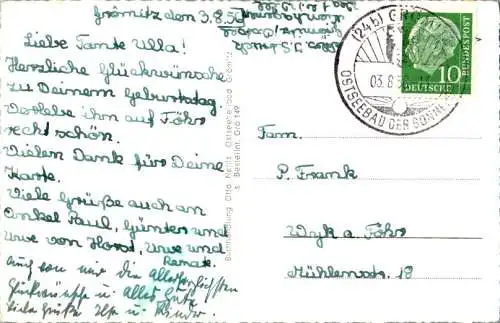 Grömitz den 3.8.56
Liebe Tante Ulla!
Herzliche Glückwünsche
zu Deinem Geburtstag.
Verlebe ihn auf Föhr
recht schön.
Vielen Dank für Deine
Karte.
Viele Grüße auch an
Onkel Paul, Günter und
Uwe von Horst, Uwe und
Renate.
Auch von mir die Allerherzlichsten
Glückwünsche u. alles Gute
viele Grüße Ilse u. Kinder.
Buchhandlung Otto Ostseebad Grömitz
Bestellnr. Grö 149
(24b) GRÖ
03.8.
OSTSEEBAD DER SONNEN
10
DEUTSCHE
BUNDESPOST
Fam.
P. Frank
Wyk a. Föhr
Mühlenstr. 18